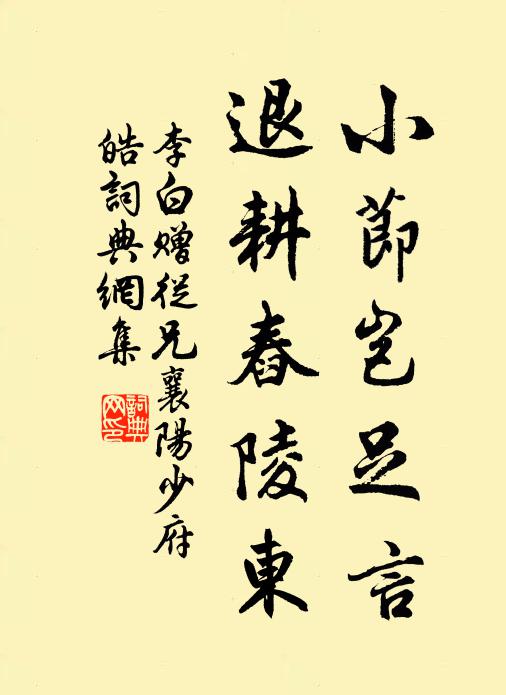 小節豈足言
退耕舂陵東
李白贈從兄襄陽少府
皓詞典網集
詞典
网印